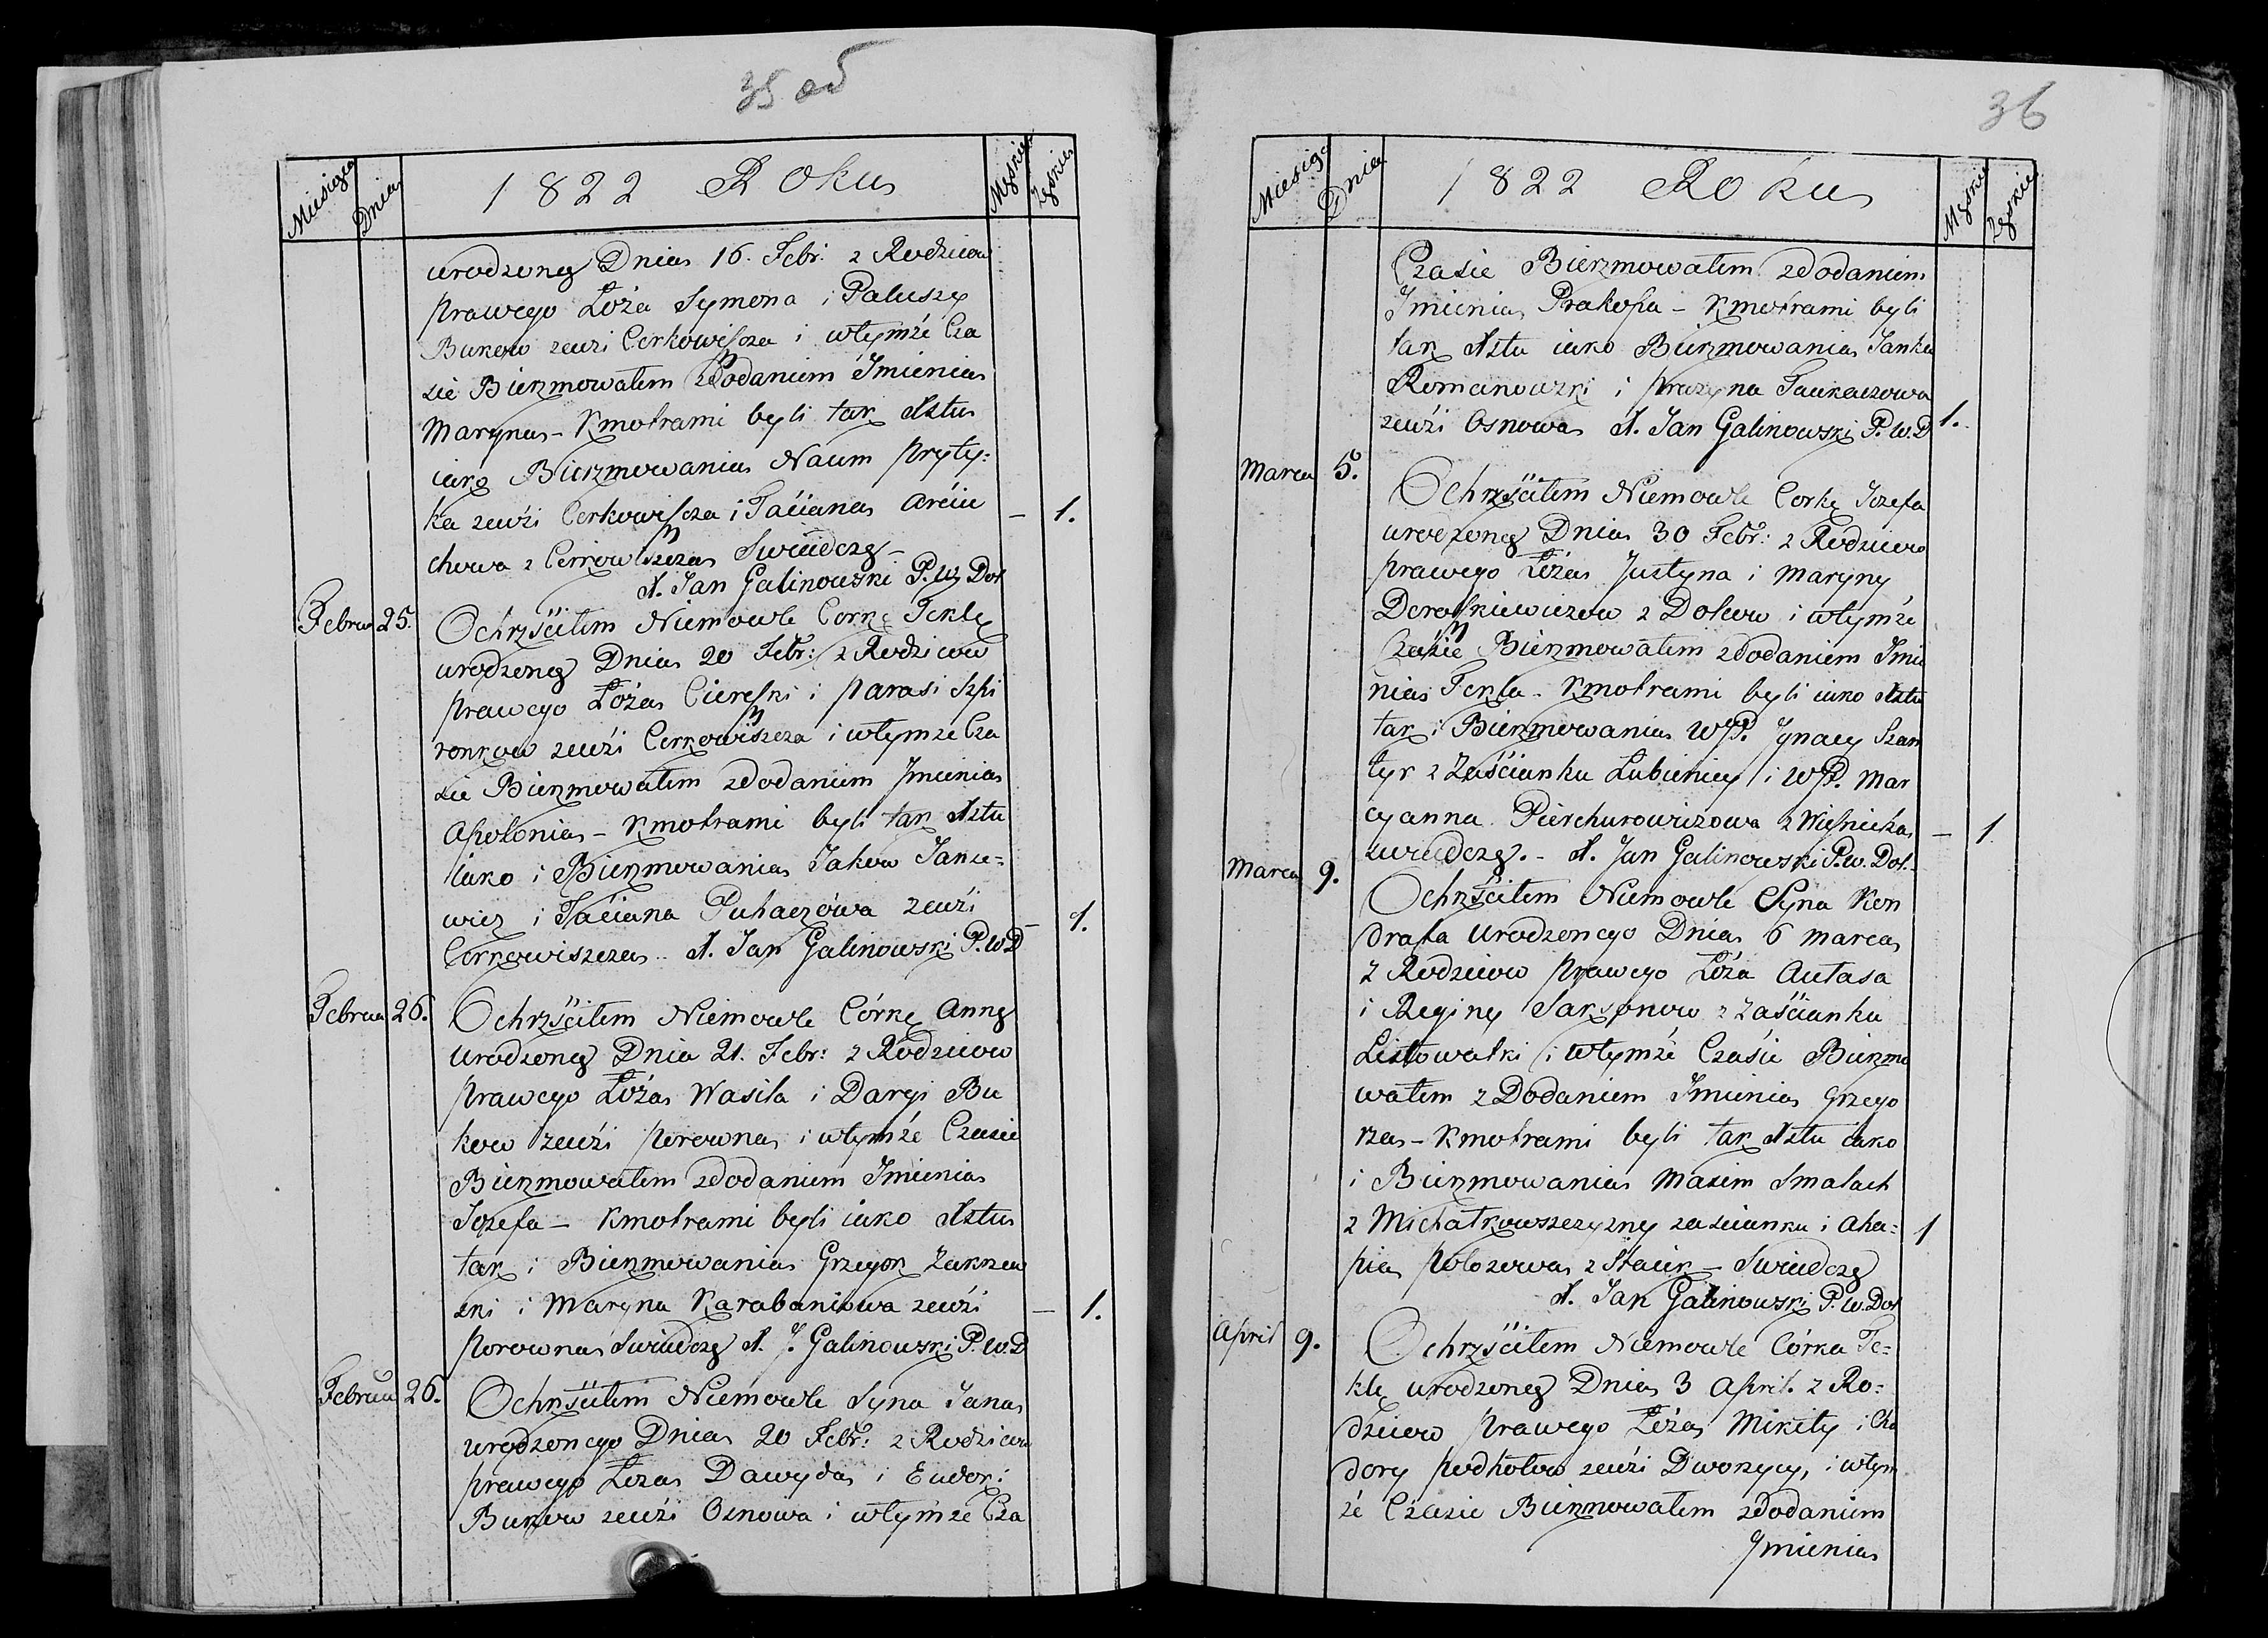 35 об
Miesiąca Dnia 1822 Roku Męskie Żęskie
urodzoną Dnia 16. Febr: z Rodzicow
prawego Łoża Symona i Paluszy
Bukow zewsi Cerkowiscza i wtymże Cza
sie Bierzmowałem zdodaniem Jmienia
Maryna - Kmotrami byli tak Xztu
iako Bierzmowania Naum Pryty:
ka zewśi Cerkowiscza i Taciana Arciu
chowa z Cerkowiszcza Swiadczą - - 1.
X. Jan Galinowski P. W. Doł
Februa 25. Ochrzściłem Niemowle Corkę Teklę
urodzoną Dnia 20 Febr: z Rodzicow
prawego Łoża Ciereszki i Parasi Szpi
ronkow zewśi Cerkowiszcza i wtymże Cza
sie Bierzmowałem zdodaniem Jmienia
Apołonia - Kmotrami byli tak Xztu
iako i Bierzmowania Jakow Janu=
wicz i Taciana Puhaczówa zewśi
Cerkowiszcza.. X. Jan Galinowski P. W D - 1.
Februa 26. Ochrzściłem Niemowle Córkę Annę
urodzoną Dnia 21. Febr: z Rodzicow
prawego Łoża Wasila i Daryi Bu
kow zewśi Porowna i wtymże Czasie
Bierzmowałem zdodaniem Jmienia
Jozefa - Kmotrami byli iako Xztu
tak i Bierzmowania Grzegorz Zakrzew
ski i Maryna Karabaniowa zewśi
Porowna Swiadczą X. J. Galinowski P. W. D - 1.
Februa 26. Ochrzściłem Niemowle Syna Jana
urodzonego Dnia 20 Febr: z Rodzicow
prawego Łoza Dawyda i Eudoxi
Bukow zewśi Osnowa i wtymże Cza
36
Miesiąca Dnia 1822 Roku Męskie Żęskie
Czasie Bierzmowałem zdodaniem
Jmienia Prakopa - Kmotrami byli
tak Xztu iako Bierzmowania Janku
Romanowski i Prazyna Taukaczowa
zewśi Osnowa X. Jan Galinowski P. W. D 1.
Marca 5. Ochrzściłem Niemowle Corkę Jozefa
urodzoną Dnia 30 Febr: z Rodzicow
prawego Łóża Justyna i Maryny
Doroszkiewiczow z Dołow i wtymże
Czasie Bierzmowałem zdodaniem Jmie
nia Tekla - Kmotrami byli iako Xztu
tak i Bierzmowania WJP. Jgnacy Szan
tyr z Zaścianku Lubienicy i WJP. Mar
cyanna Pierchurowiczowa z Wiesnicka
swiadczą. - X. Jan Galinowski P. W. Doł. - 1
Marca 9. Ochrzściłem Niemowle Syna Kon
drata urodzonego Dnia 6 Marca
z Rodzicow prawego Łóża Autasa
i Reginy Saksonow z Zaścianku
Listowatki i wtymże Czaśie Bierzmo
wałem z Dodaniem Jmienia Grzego
rza - Kmotrami byli tak Xztu iako
i Bierzmowania Maxim Smalach
z Michałkowszczyzny zascianku i Aha=
pia Połozowa z Staik - Swiadczą 1
X. Jan Galinowski P. W. Doł
April 9. Ochrzściłem Niemowle Córka Te=
klę urodzoną Dnia 3 April. z Ro=
dzicow prawego Łóża Mikity i Cho
dory Podhołow zewśi Dworzycy, i wtym
że Czasie Bierzmowałem zdodaniem
Jmienia